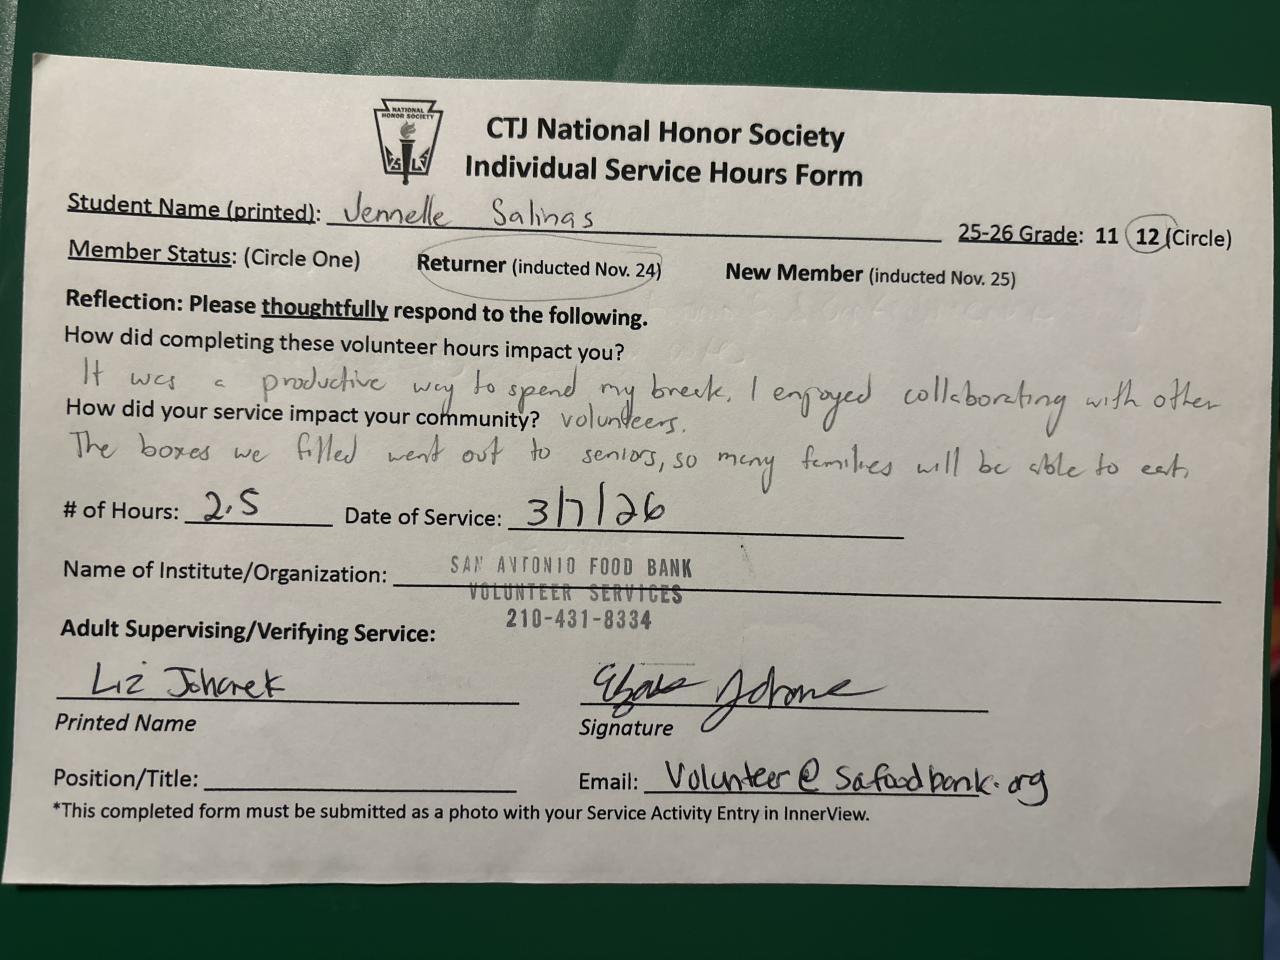 NATIONAL
HONOR SOCIETY
S L
CTJ National Honor Society
Individual Service Hours Form
Student Name (printed): Jennelle Salinas
25-26 Grade: 11 12 (Circle)
Member Status: (Circle One) Returner (inducted Nov. 24) New Member (inducted Nov. 25)
Reflection: Please thoughtfully respond to the following.
How did completing these volunteer hours impact you?
It was a productive way to spend my break. I enjoyed collaborating with other
How did your service impact your community? volunteers.
The boxes we filled went out to seniors, so many families will be able to eat.
# of Hours: 2.5 Date of Service: 3/7/26
Name of Institute/Organization: SAN ANTONIO FOOD BANK
VOLUNTEER SERVICES
210-431-8334
Adult Supervising/Verifying Service:
Liz
Printed Name Signature
Position/Title: Email: Volunteer@safoodbank.org
*This completed form must be submitted as a photo with your Service Activity Entry in InnerView.